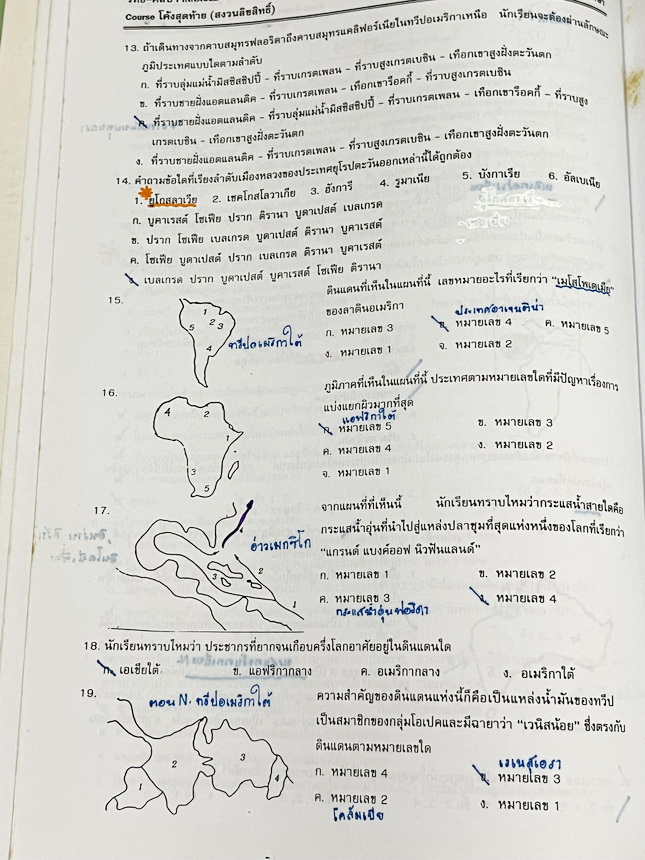 Course โค้งสุดท้าย (สงวนลิขสิทธิ์)
13. ถ้าเดินทางจากคาบสมุทรฟลอริดาถึงคาบสมุทรแคลิฟอร์เนียในทวีปอเมริกาเหนือ นักเรียนจะต้องผ่านลักษณะ
ภูมิประเทศแบบใดตามลำดับ
ก. ที่ราบลุ่มแม่น้ำมิสซิสซิปปี้ - ที่ราบเกรตเพลน - ที่ราบสูงเกรตเบซิน - เทือกเขาสูงฝั่งตะวันตก
ข. ที่ราบชายฝั่งแอตแลนติค - ที่ราบเกรตเพลน - เทือกเขาร็อคกี้ - ที่ราบสูงเกรตเบซิน
ค. ที่ราบชายฝั่งแอตแลนติค - ที่ราบลุ่มแม่น้ำมิสซิสซิปปี้ - ที่ราบเกรตเพลน - เทือกเขาร็อคกี้ - ที่ราบสูง
เกรตเบซิน - เทือกเขาสูงฝั่งตะวันตก
ง. ที่ราบชายฝั่งแอตแลนติค - ที่ราบเกรตเพลน - ที่ราบสูงเกรตเบซิน - เทือกเขาสูงฝั่งตะวันตก
14. คำถามข้อใดที่เรียงลำดับเมืองหลวงของประเทศยุโรปตะวันออกเหล่านี้ได้ถูกต้อง
1. ยูโกสลาเวีย 2. เชคโกสโลวาเกีย 3. ฮังการี 4. รูมาเนีย 5. บังกาเรีย 6. อัลเบเนีย
ก. บูคาเรสต์ โซเฟีย ปราก ติรานา บูดาเปสต์ เบลเกรด
ข. ปราก โซเฟีย เบลเกรด บูดาเปสต์ ติรานา บูคาเรสต์
ค. โซเฟีย บูดาเปสต์ ปราก เบลเกรด ติรานา บูคาเรสต์
ง. เบลเกรด ปราก บูดาเปสต์ บูคาเรสต์ โซเฟีย ติรานา
15.
1
2 3
5
4
ทวีปอเมริกาใต้
ดินแดนที่เห็นในแผนที่นี้ เลขหมายอะไรที่เรียกว่า "เมโสโพเตเมีย"
ของลาตินอเมริกา
ประเทศอาเจนตินา
ก. หมายเลข 3 ข. หมายเลข 4 ค. หมายเลข 5
ง. หมายเลข 1 จ. หมายเลข 2
16.
4 2
1
3
5
ภูมิภาคที่เห็นในแผนที่นี้ ประเทศตามหมายเลขใดที่มีปัญหาเรื่องการ
แบ่งแยกผิวมากที่สุด
แอฟริกาใต้
ก. หมายเลข 5 ข. หมายเลข 3
ค. หมายเลข 4 ง. หมายเลข 2
จ. หมายเลข 1
17.
อ่าวเมกซิโก
3 2
1
จากแผนที่ที่เห็นนี้ นักเรียนทราบไหมว่ากระแสน้ำสายใดคือ
กระแสน้ำอุ่นที่นำไปสู่แหล่งปลาชุมที่สุดแห่งหนึ่งของโลกที่เรียกว่า
"แกรนด์ แบงค์ออฟ นิวฟันแลนด์"
ก. หมายเลข 1 ข. หมายเลข 2
ค. หมายเลข 3 ง. หมายเลข 4
กระแสน้ำอุ่นฟลอริดา
18. นักเรียนทราบไหมว่า ประชากรที่ยากจนเกือบครึ่งโลกอาศัยอยู่ในดินแดนใด
ก. เอเชียใต้ ข. แอฟริกากลาง ค. อเมริกากลาง ง. อเมริกาใต้
19.
ตอน N. ทวีปอเมริกาใต้
1 2 3 4
ความสำคัญของดินแดนแห่งนี้ก็คือเป็นแหล่งน้ำมันของทวีป
เป็นสมาชิกของกลุ่มโอเปคและมีฉายาว่า "เวนิสน้อย" ซึ่งตรงกับ
ดินแดนตามหมายเลขใด
ก. หมายเลข 4 ข. หมายเลข 3
ค. หมายเลข 2 ง. หมายเลข 1
โคลัมเบีย